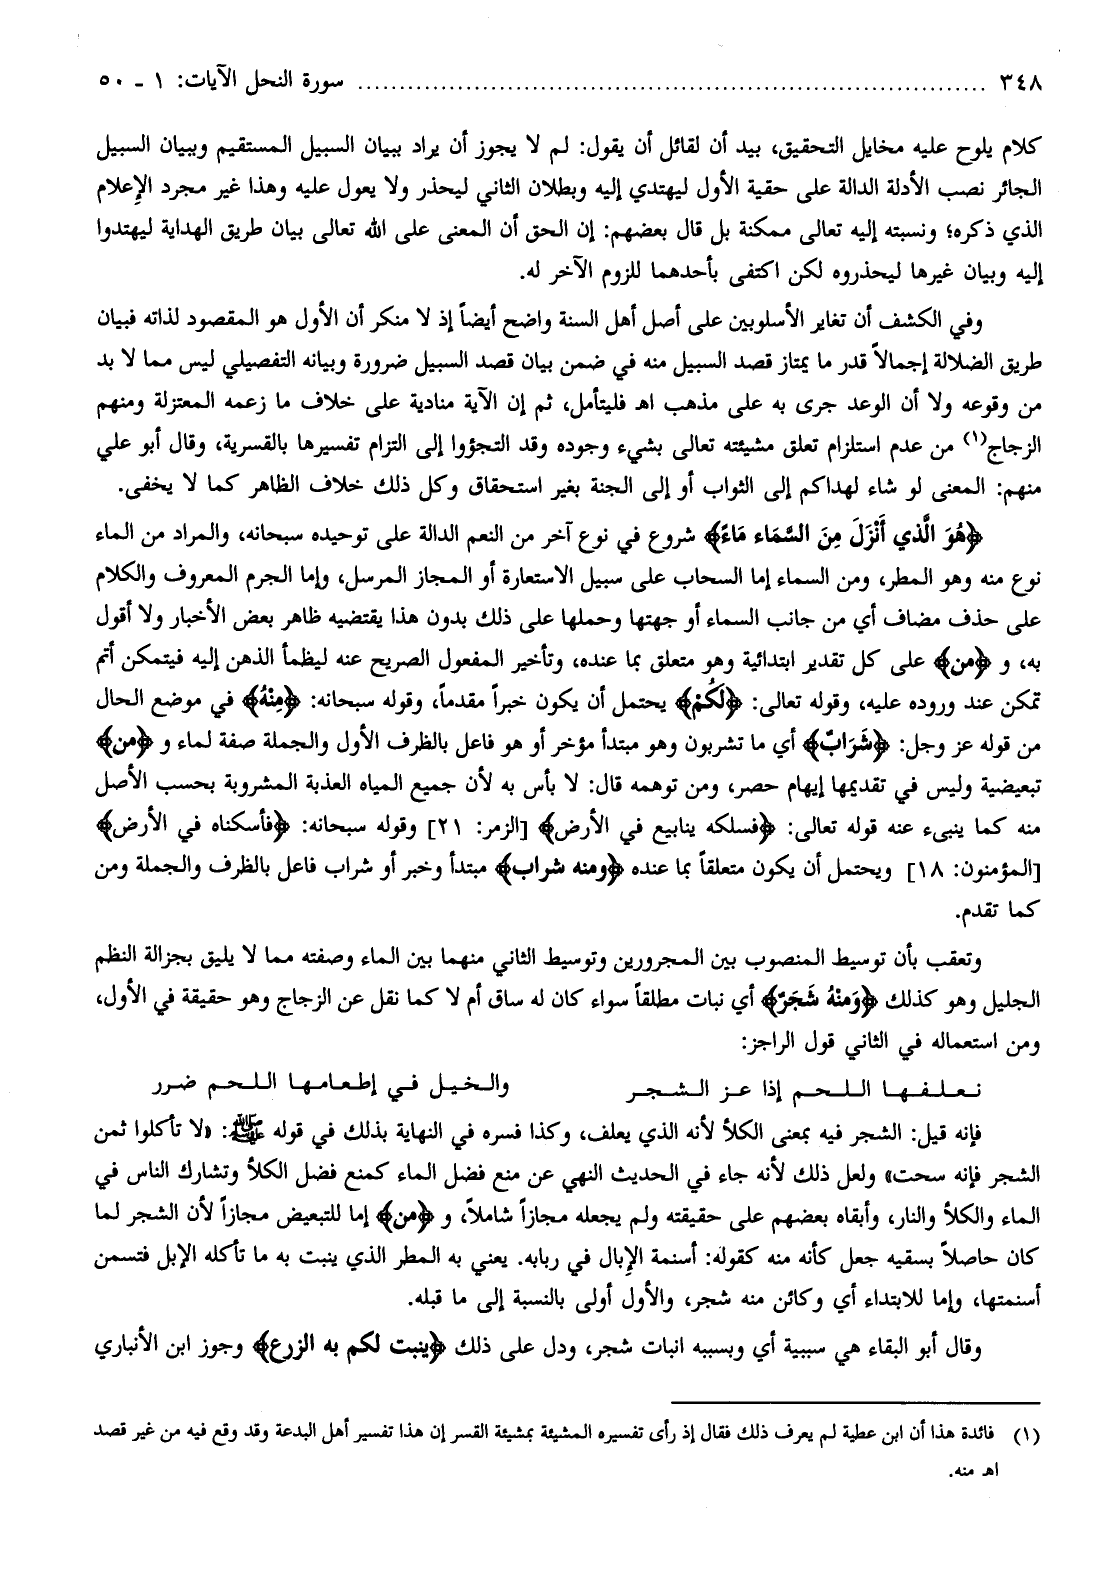 ٣٤٨ ............................................................ سورة النحل الآيات: ١ ـ ٥٠
كلام يلوح عليه مخايل التحقيق، بيد أن لقائل أن يقول: لم لا يجوز أن يراد ببيان السبيل المستقيم وببيان السبيل
الجائر نصب الأدلة الدالة على حقية الأول ليهتدي إليه وبطلان الثاني ليحذر ولا يعول عليه وهذا غير مجرد الإعلام
الذي ذكره؛ ونسبته إليه تعالى ممكنة بل قال بعضهم: إن الحق أن المعنى على الله تعالى بيان طريق الهداية ليهتدوا
إليه وبيان غيرها ليحذروه لكن اكتفى بأحدهما للزوم الآخر له.
وفي الكشف أن تغاير الأسلوبين على أصل أهل السنة واضح أيضاً إذ لا منكر أن الأول هو المقصود لذاته فبيان
طريق الضلالة إجمالاً قدر ما يمتاز قصد السبيل منه في ضمن بيان قصد السبيل ضرورة وبيانه التفصيلي ليس مما لا بد
من وقوعه ولا أن الوعد جرى به على مذهب اهـ فليتأمل، ثم إن الآية منادية على خلاف ما زعمه المعتزلة ومنهم
الزجاج(١) من عدم استلزام تعلق مشيئته تعالى بشيء وجوده وقد التجؤوا إلى التزام تفسيرها بالقسرية، وقال أبو علي
منهم: المعنى لو شاء لهداكم إلى الثواب أو إلى الجنة بغير استحقاق وكل ذلك خلاف الظاهر كما لا يخفى.
﴿هُوَ الَّذي أَنْزَلَ مِنَ السَّمَاء مَاءً﴾ شروع في نوع آخر من النعم الدالة على توحيده سبحانه، والمراد من الماء
نوع منه وهو المطر، ومن السماء إما السحاب على سبيل الاستعارة أو المجاز المرسل، وإما الجرم المعروف والكلام
على حذف مضاف أي من جانب السماء أو جهتها وحملها على ذلك بدون هذا يقتضيه ظاهر بعض الأخبار ولا أقول
به، و ﴿من﴾ على كل تقدير ابتدائية وهو متعلق بما عنده، وتأخير المفعول الصريح عنه ليظمأ الذهن إليه فيتمكن أتم
تمكن عند وروده عليه، وقوله تعالى: ﴿لَكُمْ﴾ يحتمل أن يكون خبراً مقدماً، وقوله سبحانه: ﴿مِنْهُ﴾ في موضع الحال
من قوله عز وجل: ﴿شَرَابٌ﴾ أي ما تشربون وهو مبتدأ مؤخر أو هو فاعل بالظرف الأول والجملة صفة لماء و ﴿من﴾
تبعيضية وليس في تقديمها إيهام حصر، ومن توهمه قال: لا بأس به لأن جميع المياه العذبة المشروبة بحسب الأصل
منه كما ينبىء عنه قوله تعالى: ﴿فسلكه ينابيع في الأرض﴾ [الزمر: ٢١] وقوله سبحانه: ﴿فأسكناه في الأرض﴾
[المؤمنون: ١٨] ويحتمل أن يكون متعلقاً بما عنده ﴿ومنه شراب﴾ مبتدأ وخبر أو شراب فاعل بالظرف والجملة ومن
كما تقدم.
وتعقب بأن توسيط المنصوب بين المجرورين وتوسيط الثاني منهما بين الماء وصفته مما لا يليق بجزالة النظم
الجليل وهو كذلك ﴿وَمنْهُ شَجَرٌ﴾ أي نبات مطلقاً سواء كان له ساق أم لا كما نقل عن الزجاج وهو حقيقة في الأول،
ومن استعماله في الثاني قول الراجز:
نعلفها اللحم إذا عز الشجر والخيل في إطعامها اللحم ضرر
فإنه قيل: الشجر فيه بمعنى الكلأ لأنه الذي يعلف، وكذا فسره في النهاية بذلك في قوله ﷺ: «لا تأكلوا ثمن
الشجر فإنه سحت» ولعل ذلك لأنه جاء في الحديث النهي عن منع فضل الماء كمنع فضل الكلأ وتشارك الناس في
الماء والكلأ والنار، وأبقاه بعضهم على حقيقته ولم يجعله مجازاً شاملاً، و ﴿من﴾ إما للتبعيض مجازاً لأن الشجر لما
كان حاصلاً بسقيه جعل كأنه منه كقوله: أسنمة الإبال في ربابه. يعني به المطر الذي ينبت به ما تأكله الإبل فتسمن
أسنمتها، وإما للابتداء أي وكائن منه شجر، والأول أولى بالنسبة إلى ما قبله.
وقال أبو البقاء هي سببية أي وبسببه انبات شجر، ودل على ذلك ﴿ينبت لكم به الزرع﴾ وجوز ابن الأنباري
(١) فائدة هذا أن ابن عطية لم يعرف ذلك فقال إذ رأى تفسيره المشيئة بمشيئة القسر إن هذا تفسير أهل البدعة وقد وقع فيه من غير قصد
اهـ منه.